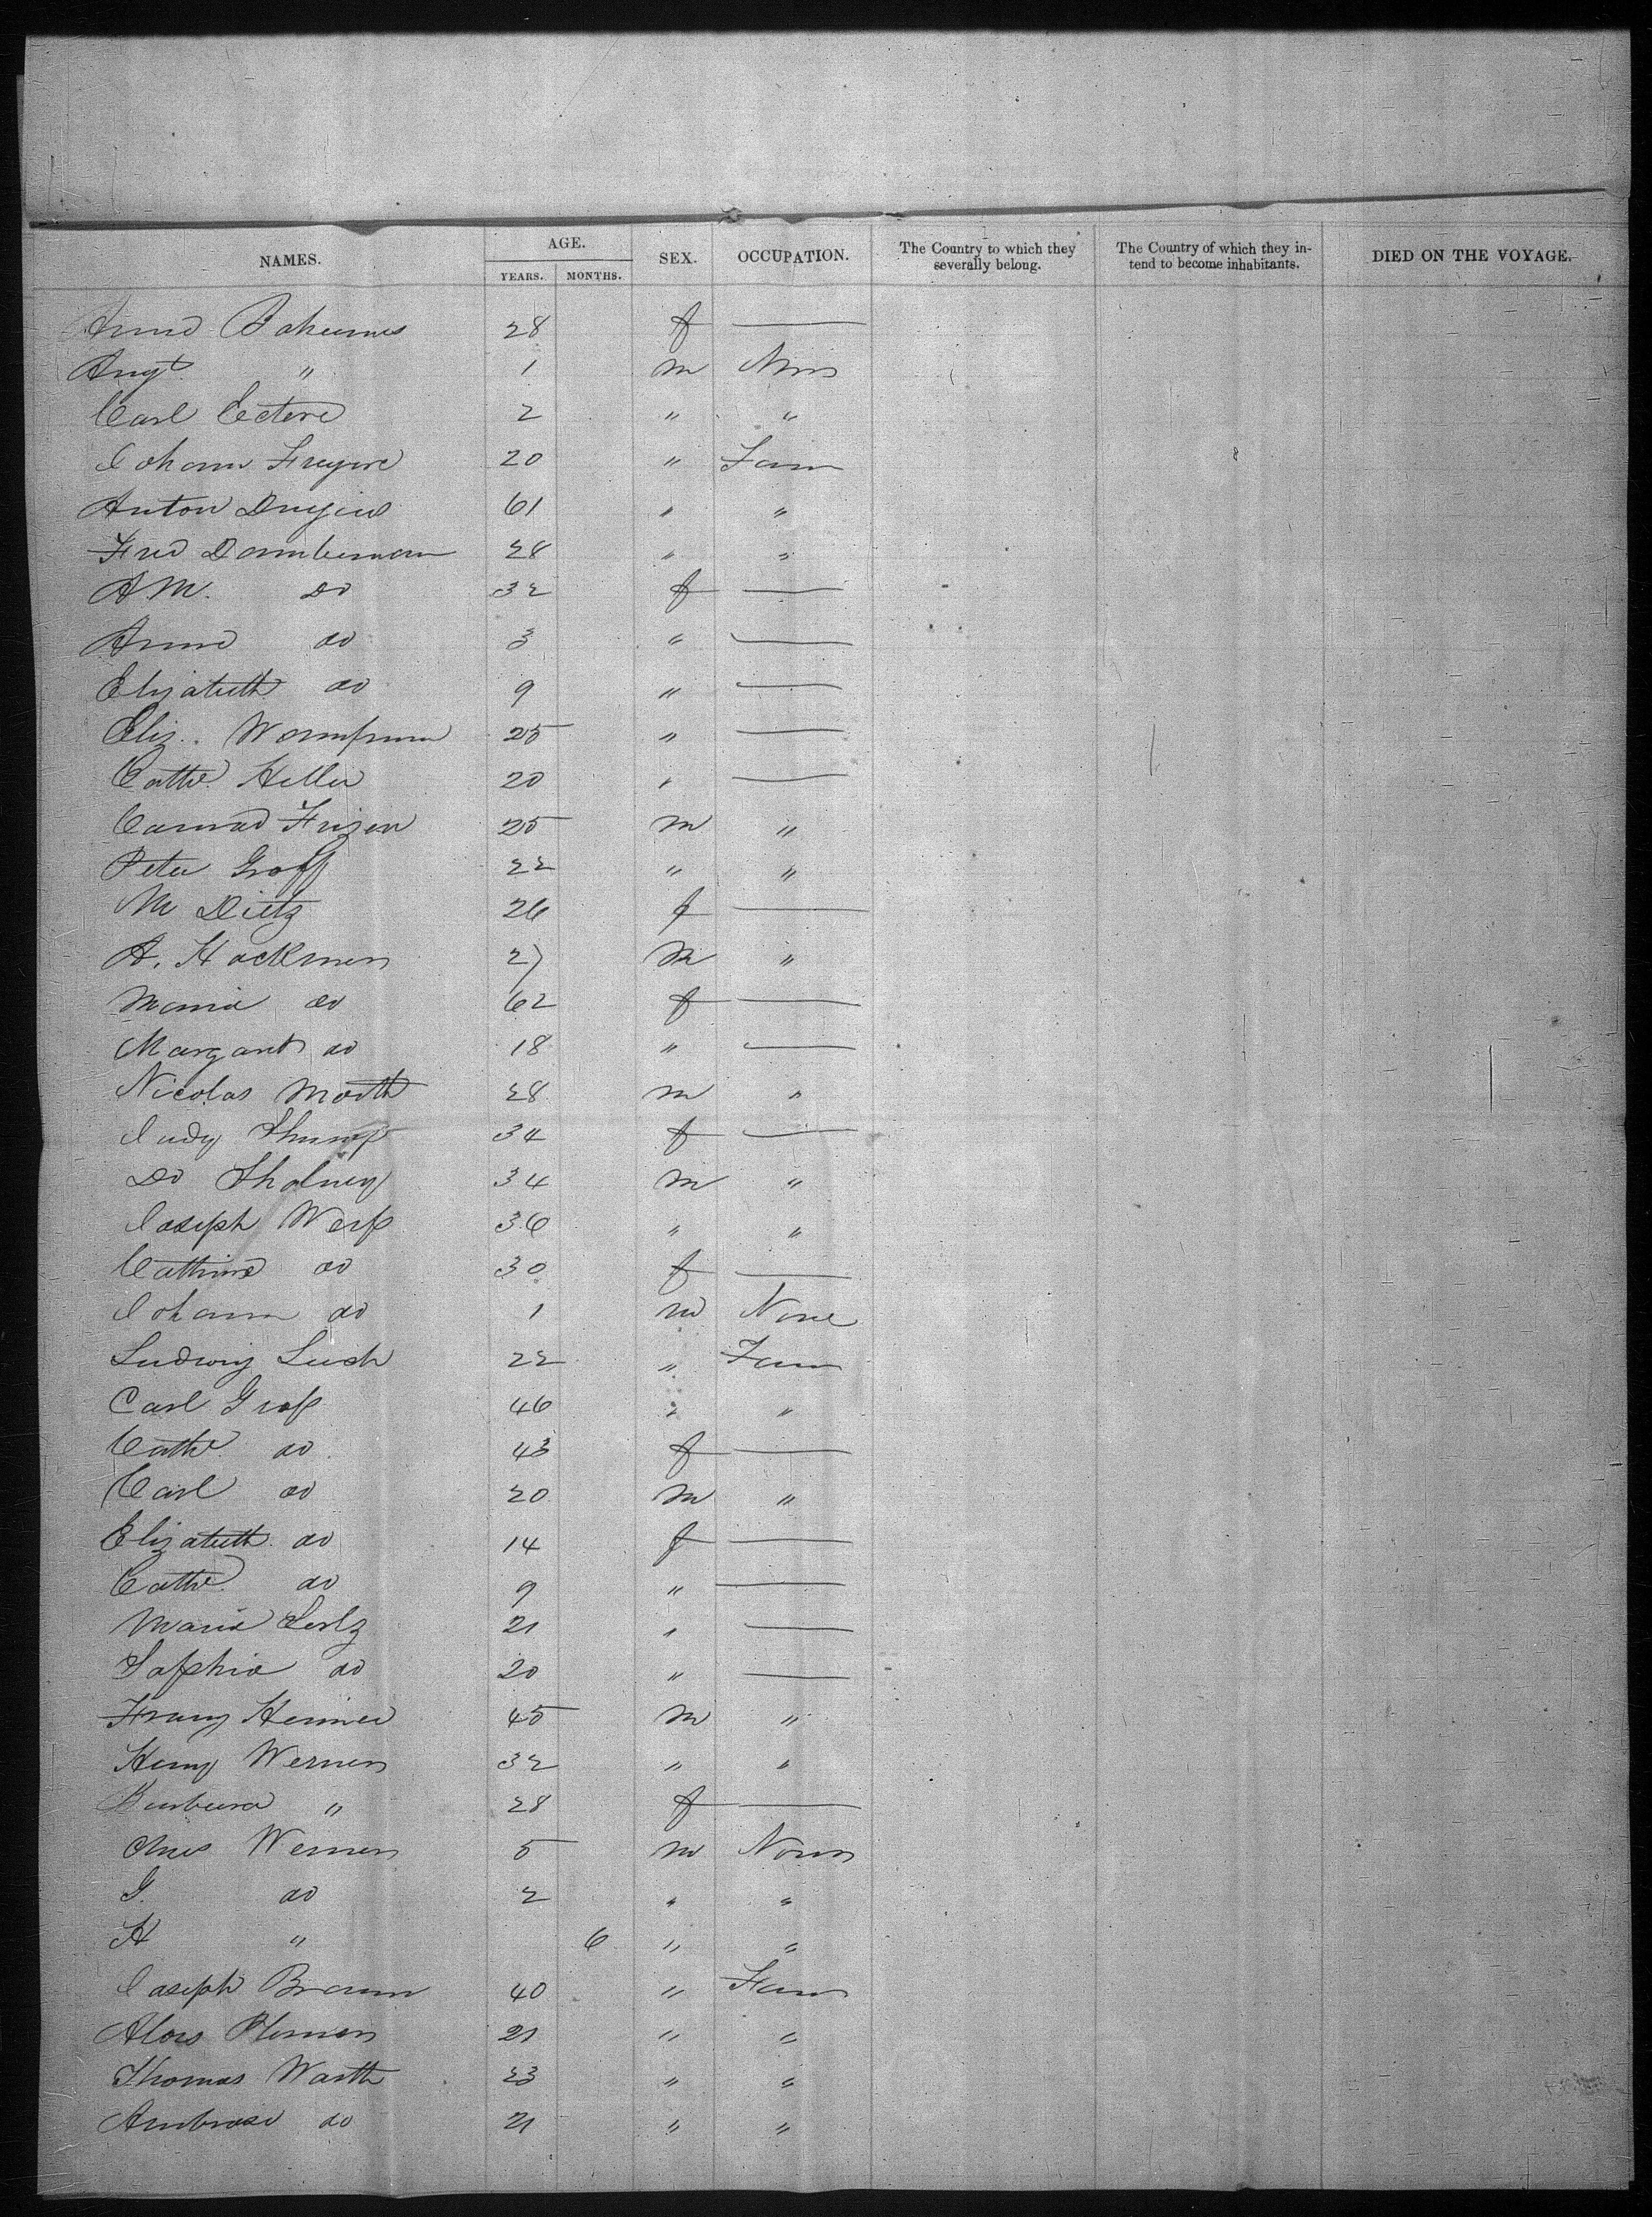 NAMES. AGE. SEX. OCCUPATION. The Country to which they severally belong. The Country of which they intend to become inhabitants. DIED ON THE VOYAGE.
YEARS. MONTHS.
28 f —
Augt " 1 m
Carl 2 " "
Johann 20 " Farm
Anton 61 " "
Fred 28 " "
A M. Do 32 f —
Anna do 3 " —
Elizabeth do 9 " —
Eliz. 25 " —
Cathe Heller 20 " —
Conrad Frizen 25 m "
Peter Groff 22 " "
M Dietz 26 f —
A. Hackmen 27 m "
Maria do 62 f —
Margaret do 18 " —
Nicolas Morth 28 m "
Judy 34 f —
Do 34 m "
Joseph 36 " "
Cathrine do 30 f —
Johann do 1 m None
Ludwig 22 " Farm
Carl Groß 46 " "
Cathe do 43 f —
Carl do 20 m "
Elizabeth do 14 f —
Cathe do 9 " —
Maria 21 " —
Sophia do 20 " —
Franz 45 m "
Henry Werner 32 " "
Barbara " 28 f —
Werner 5 m None
G. do 2 " "
H " 6 " "
Joseph Braun 40 " Farm
Alois 21 " "
Thomas Warth 23 " "
Ambrose do 21 " "